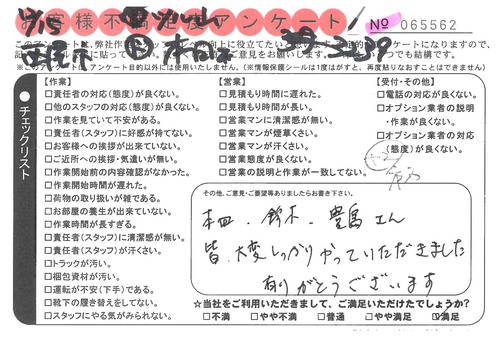 お客様不満足度アンケート
No 065562
このアンケートは、弊社作業
向上に役立てたい
アンケートになりますので、
いつでも結構です。
(※このアンケートは、アンケート目的以外には使用いたしません。)(※情報保護シールは1度がすと、再度貼りなおすことはできません)
チェックリスト
【作業】
□責任者の対応(態度)が良くない。
□他のスタッフの対応(態度)が良くない。
□作業を見ていて不安がある。
□責任者(スタッフ)に好感が持てない。
□お客様への挨拶が出来ていない。
□ご近所への挨拶・気遣いが無い。
□作業開始前の内容確認がなかった。
□作業開始時間が遅れた。
□荷物の取り扱いが雑である。
□お部屋の養生が出来ていない。
□作業時間が長すぎる。
□責任者(スタッフ)に清潔感が無い。
□責任者(スタッフ)が汗くさい。
□トラックが汚い。
□梱包資材が汚い。
□運転が不安(下手)である。
□靴下の履き替えをしてない。
□スタッフにやる気がみられない。
【営業】
□見積もり時間に遅れた。
□見積もり時間が長い。
□営業マンに清潔感が無い。
□営業マンが煙草くさい。
□営業マンが汗くさい。
□営業態度が良くない。
□営業の説明と作業が一致してない。
【受付・その他】
□電話の対応が良くない。
□オプション業者の説明
・作業が良くない。
□オプション業者の対応
(態度)が良くない。
その他、ご意見・ご要望等ありましたらお書き下さい。
鈴木、豊島さん
皆、大変しっかりやっていただきました
ありがとうございます
☆当社をご利用いただきまして、ご満足いただけたでしょうか?
□不満 □やや不満 □普通 □やや満足 ☑満足